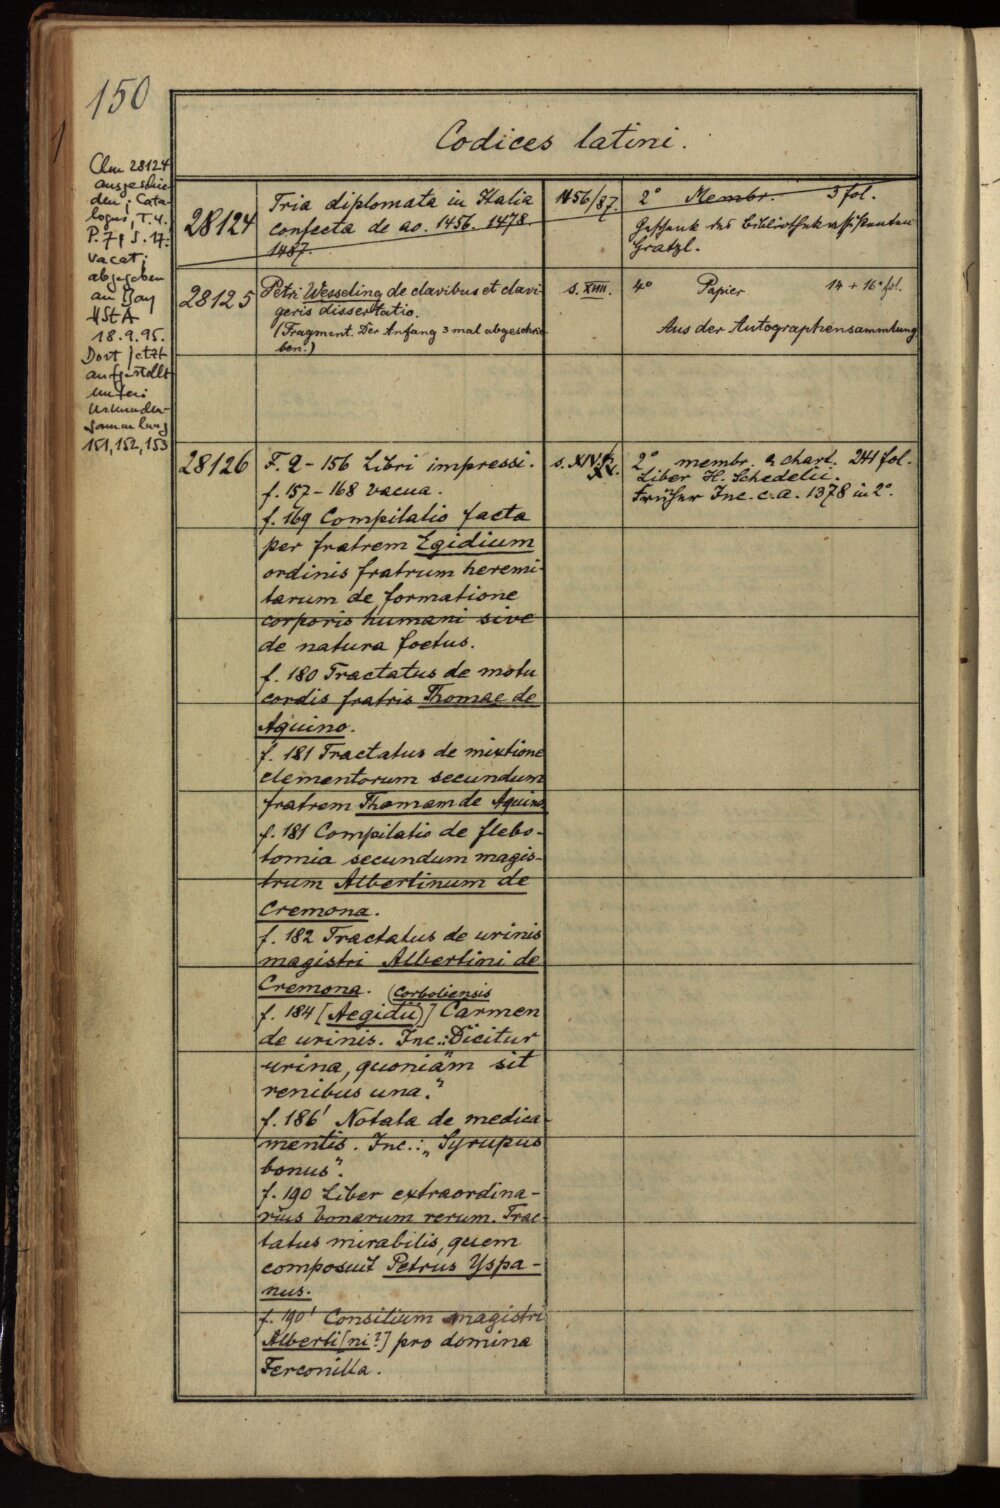 150
Codices latini.
Clm 28124
ausgeschie
den; Cata-
logus, T. 4.
P. 7, S. 17:
vacat;
abgegeben
an Bay
HStA
18.9.95.
Dort jetzt
aufgestellt
unter:
Urkunden-
sammlung
151, 152, 153
28124
Tria diplomata in Italia
confecta de ao. 1456. 1478.
1487.
1456/87
2° Membr. 3 fol.
Geschenk des Bibliothekassistenten
Gratzl.
28125
Petri Wesseling de clavibus et clavi-
geris dissertatio.
(Fragment. Der Anfang 3 mal abgeschrie-
ben.)
s. XVIII.
4° Papier 14 + 16° fol.
Aus der Autographensammlung
28126
F. 2-156 Libri impressi.
f. 157-168 vacua.
f. 169 Compilatio facta
per fratrem Egidium
ordinis fratrum heremi-
tarum de formatione
corporis humani sive
de natura foetus.
f. 180 Tractatus de motu
cordis fratris Thomae de
Aquino.
f. 181 Tractatus de mixtione
elementorum secundum
fratrem Thomam de Aquino
f. 181 Compilatio de flebo-
tomia secundum magis-
trum Albertinum de
Cremona.
f. 182 Tractatus de urinis
magistri Albertini de
Cremona.
(Corboliensis
f. 184 [Aegidii)] Carmen
de urinis. Inc.: "Dicitur
urina, quoniam sit
renibus una."
f. 186' Notata de medica-
mentis. Inc.: „Syrupus
bonus".
f. 190 Liber extraordina-
rius bonarum rerum. Trac-
tatus mirabilis, quem
composuit Petrus Yspa-
nus.
f. 190' Consilium magistri
Alberti[ni?] pro domina
Ferconilla.
s. XIV.
XV.
2° membr. & chart. 241 fol.
Liber H. Schedelii.
Früher Inc. c. a. 1378 in 2°.